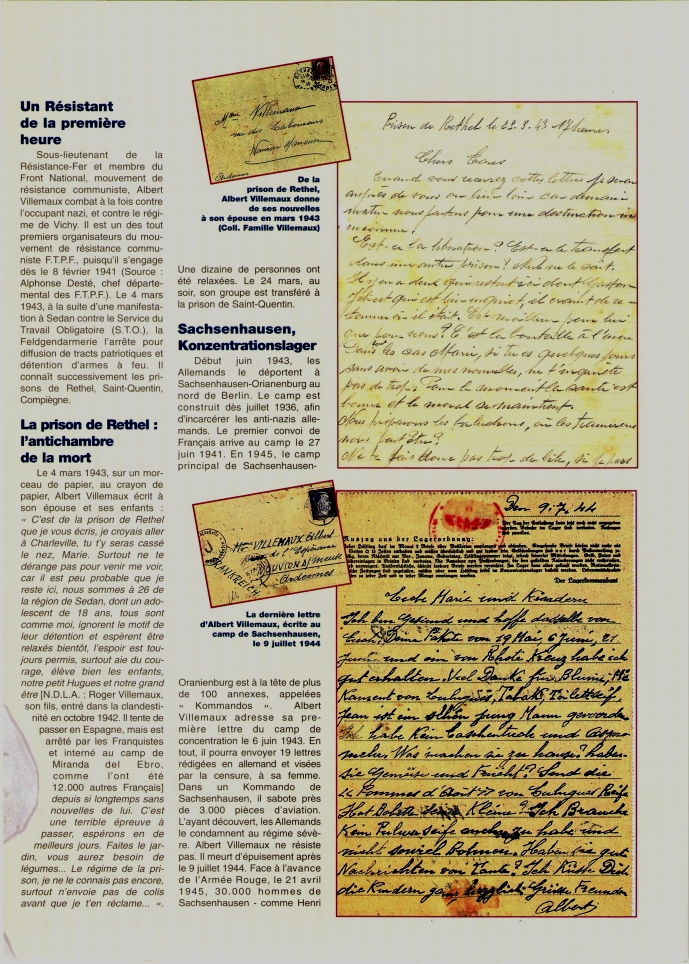 Un Résistant
de la première
heure
Sous-lieutenant de la
Résistance-Fer et membre du
Front National, mouvement de
résistance communiste, Albert
Villemaux combat à la fois contre
l'occupant nazi, et contre le régi-
me de Vichy. Il est un des tout
premiers organisateurs du mou-
vement de résistance commu-
niste F.T.P.F., puisqu'il s'engage
dès le 8 février 1941 (Source :
Alphonse Desté, chef départe-
mental des F.T.P.F.). Le 4 mars
1943, à la suite d'une manifesta-
tion à Sedan contre le Service du
Travail Obligatoire (S.T.O.), la
Feldgendarmerie l'arrête pour
diffusion de tracts patriotiques et
détention d'armes à feu. Il
connaît successivement les pri-
sons de Rethel, Saint-Quentin,
Compiègne.
La prison de Rethel :
l'antichambre
de la mort
Le 4 mars 1943, sur un mor-
ceau de papier, au crayon de
papier, Albert Villemaux écrit à
son épouse et ses enfants :
« C'est de la prison de Rethel
que je vous écris, je croyais aller
à Charleville, tu t'y seras cassé
le nez, Marie. Surtout ne te
dérange pas pour venir me voir,
car il est peu probable que je
reste ici, nous sommes à 26 de
la région de Sedan, dont un ado-
lescent de 18 ans, tous sont
comme moi, ignorent le motif de
leur détention et espèrent être
relaxés bientôt, l'espoir est tou-
jours permis, surtout aie du cou-
rage, élève bien les enfants,
notre petit Hugues et notre grand
être [N.D.L.A. : Roger Villemaux,
son fils, entré dans la clandesti-
nité en octobre 1942. Il tente de
passer en Espagne, mais est
arrêté par les Franquistes
et interné au camp de
Miranda del Ebro,
comme l'ont été
12.000 autres Français]
depuis si longtemps sans
nouvelles de lui. C'est
une terrible épreuve à
passer, espérons en de
meilleurs jours. Faites le jar-
din, vous aurez besoin de
légumes... Le régime de la pri-
son, je ne le connais pas encore,
surtout n'envoie pas de colis
avant que je t'en réclame... ».
Mme Villemaux
rue des
Ardennes
De la
prison de Rethel,
Albert Villemaux donne
de ses nouvelles
à son épouse en mars 1943
(Coll. Famille Villemaux)
Une dizaine de personnes ont
été relaxées. Le 24 mars, au
soir, son groupe est transféré à
la prison de Saint-Quentin.
Sachsenhausen,
Konzentrationslager
Début juin 1943, les
Allemands le déportent à
Sachsenhausen-Orianenburg au
nord de Berlin. Le camp est
construit dès juillet 1936, afin
d'incarcérer les anti-nazis alle-
mands. Le premier convoi de
Français arrive au camp le 27
juin 1941. En 1945, le camp
principal de Sachsenhausen-
Mme VILLEMAUX Albert
rue de l'Espérance
NOUVION s/Meuse
Ardennes
FRANKREICH
La dernière lettre
d'Albert Villemaux, écrite au
camp de Sachsenhausen,
le 9 juillet 1944
Oranienburg est à la tête de plus
de 100 annexes, appelées
« Kommandos ». Albert
Villemaux adresse sa pre-
mière lettre du camp de
concentration le 6 juin 1943. En
tout, il pourra envoyer 19 lettres
rédigées en allemand et visées
par la censure, à sa femme.
Dans un Kommando de
Sachsenhausen, il sabote près
de 3.000 pièces d'aviation.
L'ayant découvert, les Allemands
le condamnent au régime sévè-
re. Albert Villemaux ne résiste
pas. Il meurt d'épuisement après
le 9 juillet 1944. Face à l'avance
de l'Armée Rouge, le 21 avril
1945, 30.000 hommes de
Sachsenhausen - comme Henri
Prison de Rethel le 23.3.43 17 heures
Chers Tous
Quand vous recevrez cette lettre je serai
auprès de vous ou bien loin car demain
matin nous partons pour une destination in
inconnue.
Est-ce la libération? Est-ce le transfert
dans une autre prison? nul ne le sait.
Il y en a deux qui restent ici dont Gaston
qui est bien inquiet, il craint de re-
tourner où il était. Est-ce meilleur pour lui
que pour nous? C'est la bouteille à l'encre
Dans tous les cas Marie, si tu es quelques jours
sans avoir de mes nouvelles, ne t'inquiète
pas de trop. Pour le moment la santé est
bonne et le moral se maintient.
Nous préparons les baluchons, où les traînerons
nous peut être?
Ne te fais donc pas trop de bile, si je pars
Den 9.7.44
Auszug aus der Lagerordnung:
Der Lagerkommandant
Liebe Maria und Kindern
Ich bin Gesund und hoffe dasselbe von
Euch. Deine Pakete von 19 Mai, 6 Juni, 21
Juni und ein von Rote Kreuz habe ich
gut erhalten. Viel Danke für Blume, Me
Kament von Tabak, Toilettseife
Jean ist ein schön jung Mann geworden
Ich habe kein Taschentuch und
mehr. Was machen sie zu hause? haben
sie Gemüse und Frucht? Send die
Pommes d'Août 47 von Hugues Reife
Hat Kleine? Ich Brauche
Kein Pulver Seife zu habe und
nicht soviel Bohnen. Haben sie gut
Nachrichten von Tante? Ich Küsse Dich
die Kindern ganz herzlich. Grüsse Freunden
Albert